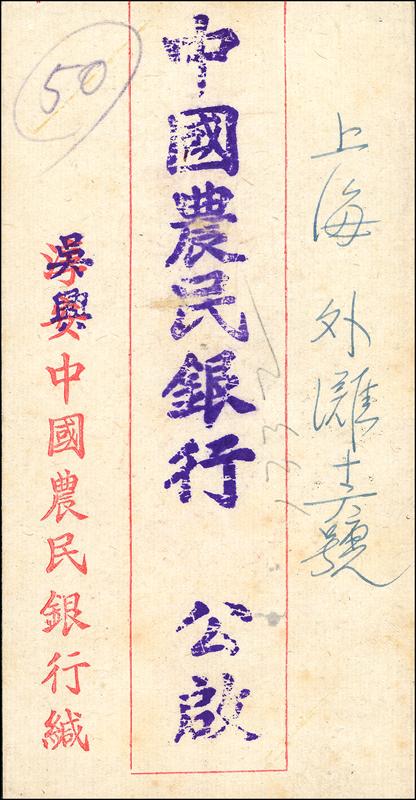 上海 外灘十六號
中國農民銀行 公啟
吳興
中國農民銀行緘
50